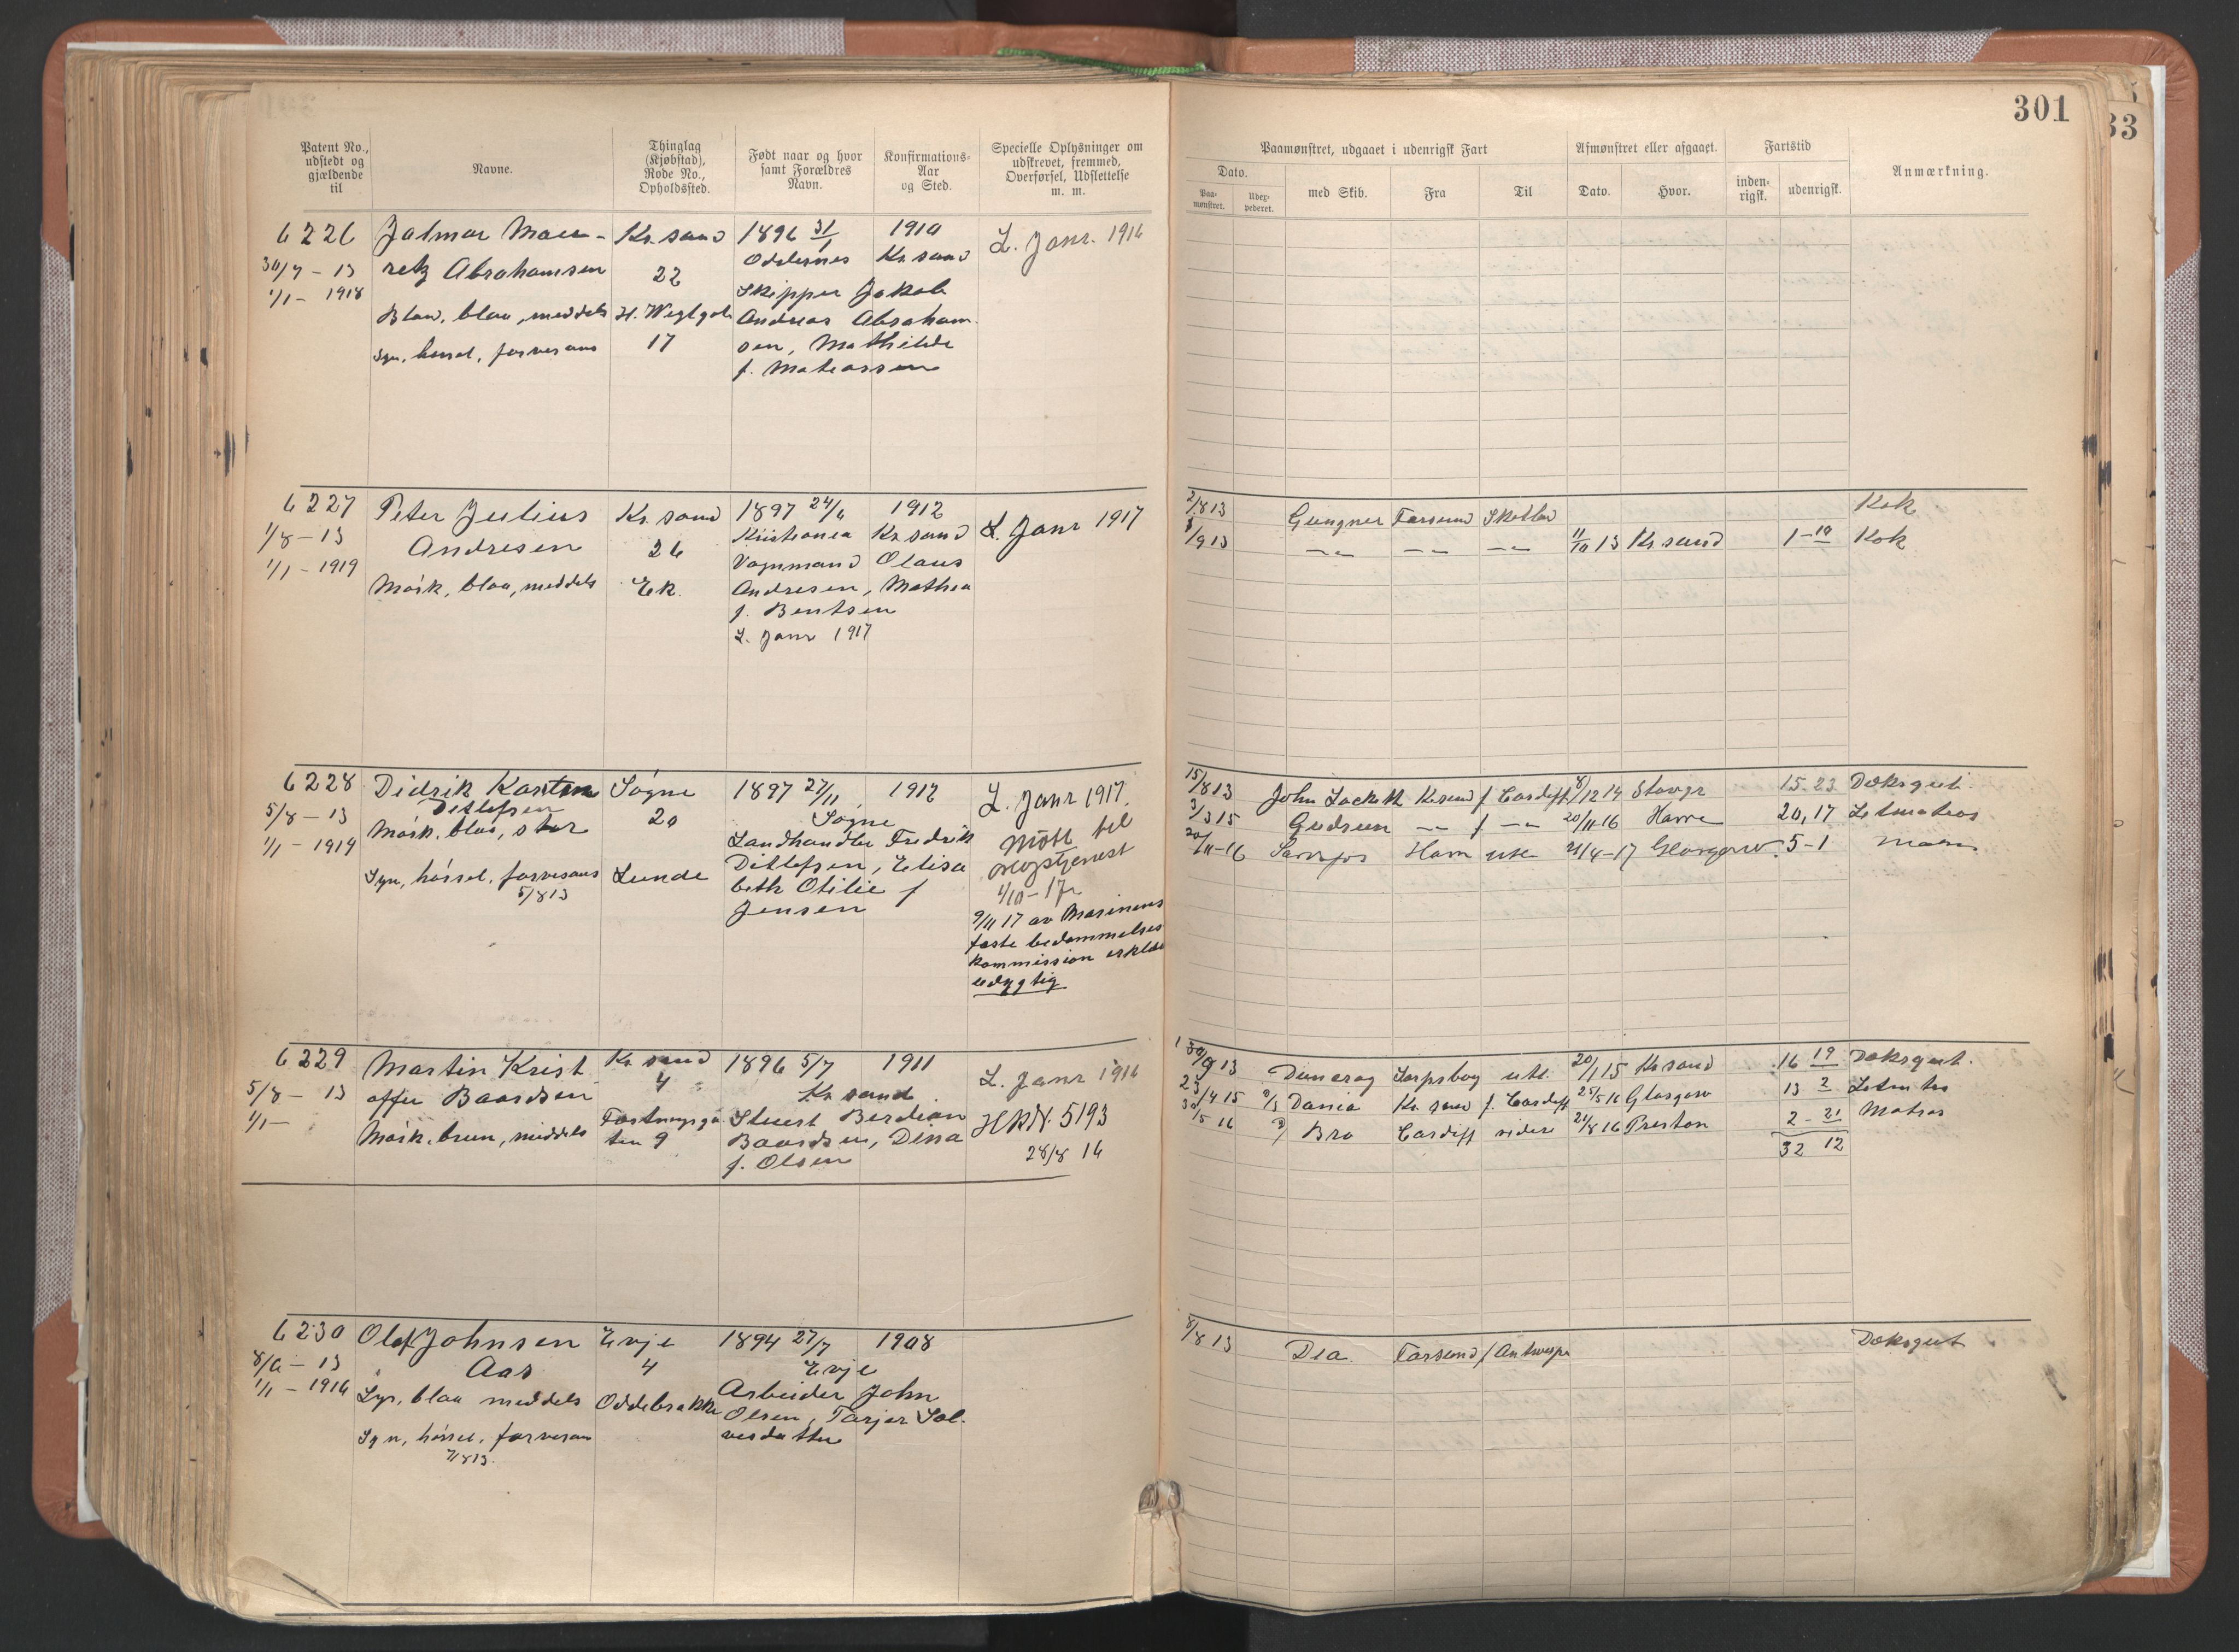 301
33
Patent No., udstedt og gjældende til
Navne.
Thinglag (Kjøbstad), Rode No., Opholdssted.
Født naar og hvor samt Forældres Navn.
Konfirmations-Aar og Sted.
Specielle Oplysninger om udskrevet, fremmed, Overførsel, Udslettelse m. m.
Paamønstret, udgaaet i udenrigsk Fart
Afmønstret eller afgaaet.
Fartstid
Anmærkning.
Dato.
Paa-mønstret.
med Skib.
Fra
Til
Dato.
Hvor.
inden-rigsk.
udenrigsk.
6226 Jalmar Mau- Kr. sand 1896 31/1 1910 L. Janr. 1916
30/7 - 13 retz Abrahamsen 22 Oddernes Kr sand
1/1 - 1918 Skipper Jakob
Blond, blaa, meddels H. Wegl gate Andreas Abraham
Syn, hørsel, farvesans 17 sen, Mathilde
f. Matiassen
6227 Peter Julius Kr. sand 1897 24/6 1912 L. Janr 1917
1/8 - 13 Andresen 26 Kristiania Kr sand
1/1 - 1919 Vognmand Olaus
Mørk, blaa, meddels Ek. Andresen, Mathea
f. Bentsen
L. Janr 1917
2/8 13 Gungner Farsund Skotland Kok
1/9 13 11/10 13 Kr sand 1-10 Kok
6228 Didrik Karsten Søgne 1897 27/11 1912 L. Janr 1917
5/8 - 13 Ditlefsen 20 Søgne
1/1 - 1919 Mørk, blaa, stor Landhandler Fredrik møtt til
Syn, hørsel, farvesans Lunde Ditlefsen, Elisa
5/8 13 beth Otilie f
Jensen
1/10 - 17
9/11 17 av Marinens
faste bedømmelses
kommission erklært
udygtig
15/8 13 John Lockett Kr sand f Cardiff 8/12 14 Stavgr 15-23 Dæksgut.
3/3 15 Gudrun f 20/11-16 Havre 20, 17 Letmatros
20/11-16 Havre ute 21/4-17 Glasgow 5-1
6229 Martin Krist Kr sand 1896 5/7 1911 L. Janr 1916
5/8 - 13 offer Baardsen 4 Kr sand
1/1 - Fæstningsga Stuert Berdian HKN. 5193
Mørk, brun, middels ten 9 Baardsen, Dina
f. Olsen 28/8 16
30/9 13 Dunerag Sarpsborg ute 20/1 15 Kr sand 16 19 Dæksgut.
23/4 15 Dania Kr. sand f. Cardiff 25/5 16 Glasgow 13 2
30/5 16 Bro Cardiff videre 21/8 16 Preston 2-21 Matros
32 12
6230 Olaf Johnsen Evje 1894 27/7 1908
8/8 - 13 Aas 4 Evje
1/1 - 1916 Lys, blaa meddels Oddebrække Arbeider John
Olsen, Tarjer Sol-
Syn, hørsel, farvesans vesdatter
7/8 13.
8/8 13 Dia. Farsund f Antwerpen Dæksgut